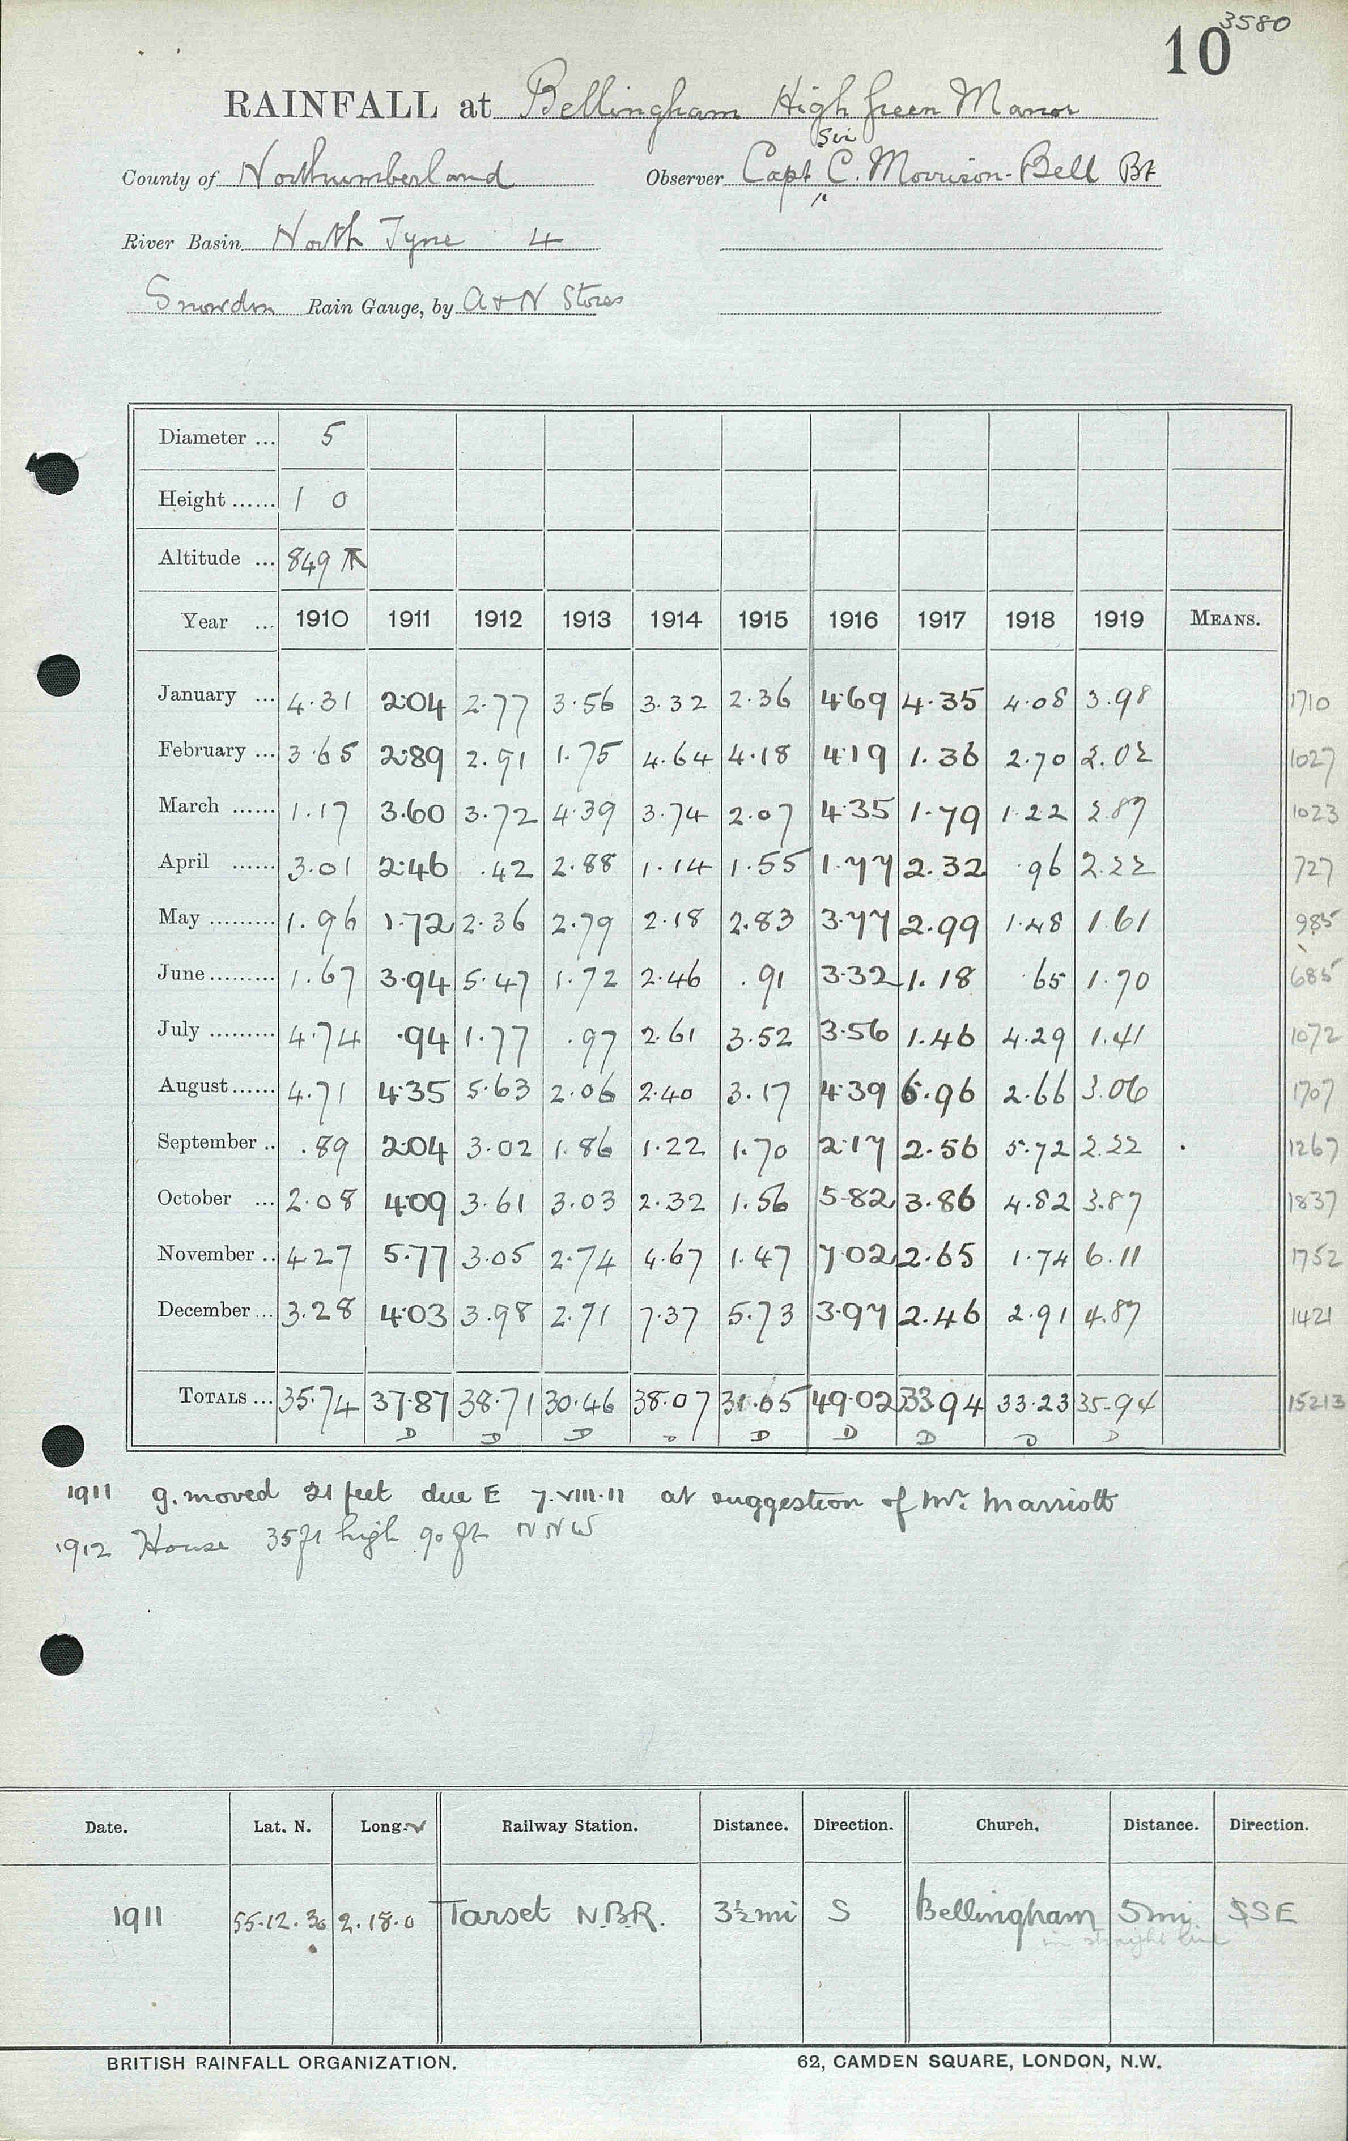 3580
10
RAINFALL at Bellingham High Green Manor
Sir
County of Northumberland Observer Capt C. Morrison-Bell Bt
River Basin North Tyne 4
Snowdon Rain Gauge, by A & N Stores
Diameter ... 5
Height ...... 1 0
Altitude ... 849
Year ... 1910 1911 1912 1913 1914 1915 1916 1917 1918 1919 MEANS.
January ... 4.31 2.04 2.77 3.56 3.32 2.36 4.69 4.35 4.08 3.98 1710
February ... 3.65 2.89 2.91 1.75 4.64 4.18 4.19 1.36 2.70 2.02 1027
March ...... 1.17 3.60 3.72 4.39 3.74 2.07 4.35 1.79 1.22 2.87 1023
April ...... 3.01 2.46 .42 2.88 1.14 1.55 1.77 2.32 .96 2.22 727
May ......... 1.96 1.72 2.36 2.79 2.18 2.83 3.77 2.99 1.48 1.61 985
June ......... 1.67 3.94 5.47 1.72 2.46 .91 3.32 1.18 .65 1.70 685
July ......... 4.74 .94 1.77 .97 2.61 3.52 3.56 1.46 4.29 1.41 1072
August ...... 4.71 4.35 5.63 2.06 2.40 3.17 4.39 6.96 2.66 3.06 1707
September .. .89 2.04 3.02 1.86 1.22 1.70 2.17 2.56 5.72 2.22 1267
October ... 2.08 4.09 3.61 3.03 2.32 1.56 5.82 3.86 4.82 3.87 1837
November .. 4.27 5.77 3.05 2.74 4.67 1.47 7.02 2.65 1.74 6.11 1752
December ... 3.28 4.03 3.98 2.71 7.37 5.73 3.97 2.46 2.91 4.87 1421
TOTALS ... 35.74 37.87 38.71 30.46 38.07 31.05 49.02 33.94 33.23 35.94 15213
D D D D D D D D D
1911 g. moved 21 feet due E 7.VIII.11 at suggestion of Mr. Marriott
1912 House 35 ft high 90 ft NNW
Date. Lat. N. Long. Railway Station. Distance. Direction. Church. Distance. Direction.
1911 55.12.30 2.18.0 Tarset N.B.R. 3½ mi S Bellingham 5 mi. SSE
in straight line
BRITISH RAINFALL ORGANIZATION. 62, CAMDEN SQUARE, LONDON, N.W.